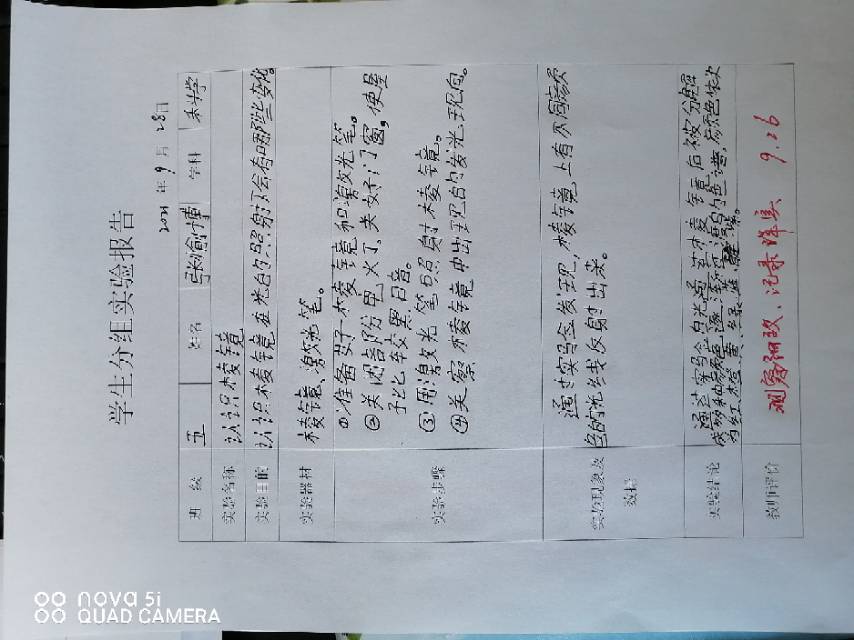 学生分组实验报告
2021年9月28日
班级 五 姓名 张愉博 学科 科学
实验名称 认识棱镜
实验目的 认识棱镜在光的照射下会有哪些变化。
实验器材 棱镜、激光笔。
实验步骤
①准备好棱镜和激光笔。
②关闭部分电灯,关好门窗,使屋
子比较黑暗。
③用激光笔照射棱镜。
④观察棱镜中出现的发光现象。
实验现象及
数据
通过实验会发现,棱镜上有不同颜次
色的光线反射出来。
实验结论
通过实验会白光通过棱镜后被分解
成多种颜色逐渐过渡的色谱,颜色依次
为红、橙、黄、绿、蓝、靛、紫。
教师评价 观察细致、记录详实 9.26
nova 5i
QUAD CAMERA